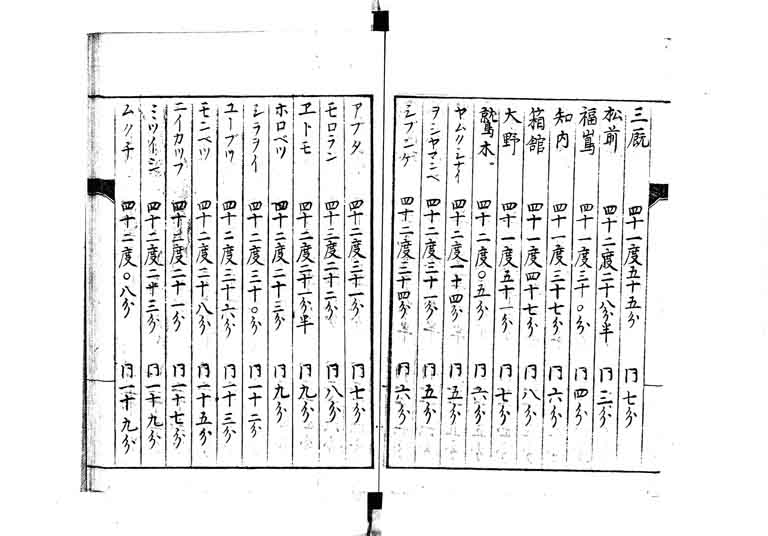 三厩 四十一度五十五分 冂七分
松前 四十二度二十八分半 冂二分
福嶌 四十一度三十〇分 冂四分
知内 四十一度三十七分 冂六分
箱館 四十一度四十七分 冂八分
大野 四十一度五十一分 冂七分
鷲木 四十二度〇五分 冂六分
ヤムクシナイ 四十二度一十四分 冂五分
ヲシヤマンベ 四十二度三十一分 冂五分
シブンゲ 四十二度三十四分 冂六分
アブタ 四十二度三十一分 冂七分
モロラン 四十二度二十二分 冂八分
ヱトモ 四十二度二十一分半 冂九分
ホロベツ 四十二度二十三分 冂九分
シラヲイ 四十二度三十〇分 冂一十二分
ユーブツ 四十二度三十六分 冂一十三分
モンベツ 四十二度二十八分 冂一十五分
ニイカツプ 四十二度二十一分 冂一十七分
ミツイシ 四十二度一十三分 冂一十九分
ムクチ 四十二度〇八分 冂一十九分